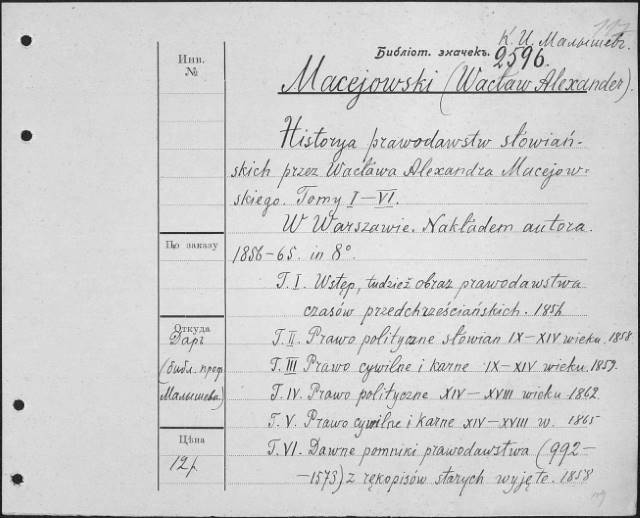 К. И. Малышевъ.
Библіот. значекъ. 2596.
Инв.
№
Macejowski (Wacław Alexander).
Historya prawodawstw słowiań-
skich przez Wacława Alexandra Macejow-
skiego. Tomy I–VI.
W Warszawie. Nakładem autora.
По заказу
1856–65. in 8°.
T. I. Wstęp, tudzież obraz prawodawstwa
czasów przedchrześciańskich. 1856
Откуда
Даръ
(библ. проф.
Малышева)
T. II. Prawo polityczne słowian IX–XIV wieku. 1858
T. III Prawo cywilne i karne IX–XIV wieku. 1859.
T. IV. Prawo polityczne XIV–XVIII wieku 1862.
T. V. Prawo cywilne i karne XIV–XVIII w. 1865
Цѣна
12 р.
T. VI. Dawne pomniki prawodawstwa (992–
–1573) z rękopisów starych wyjęte. 1858